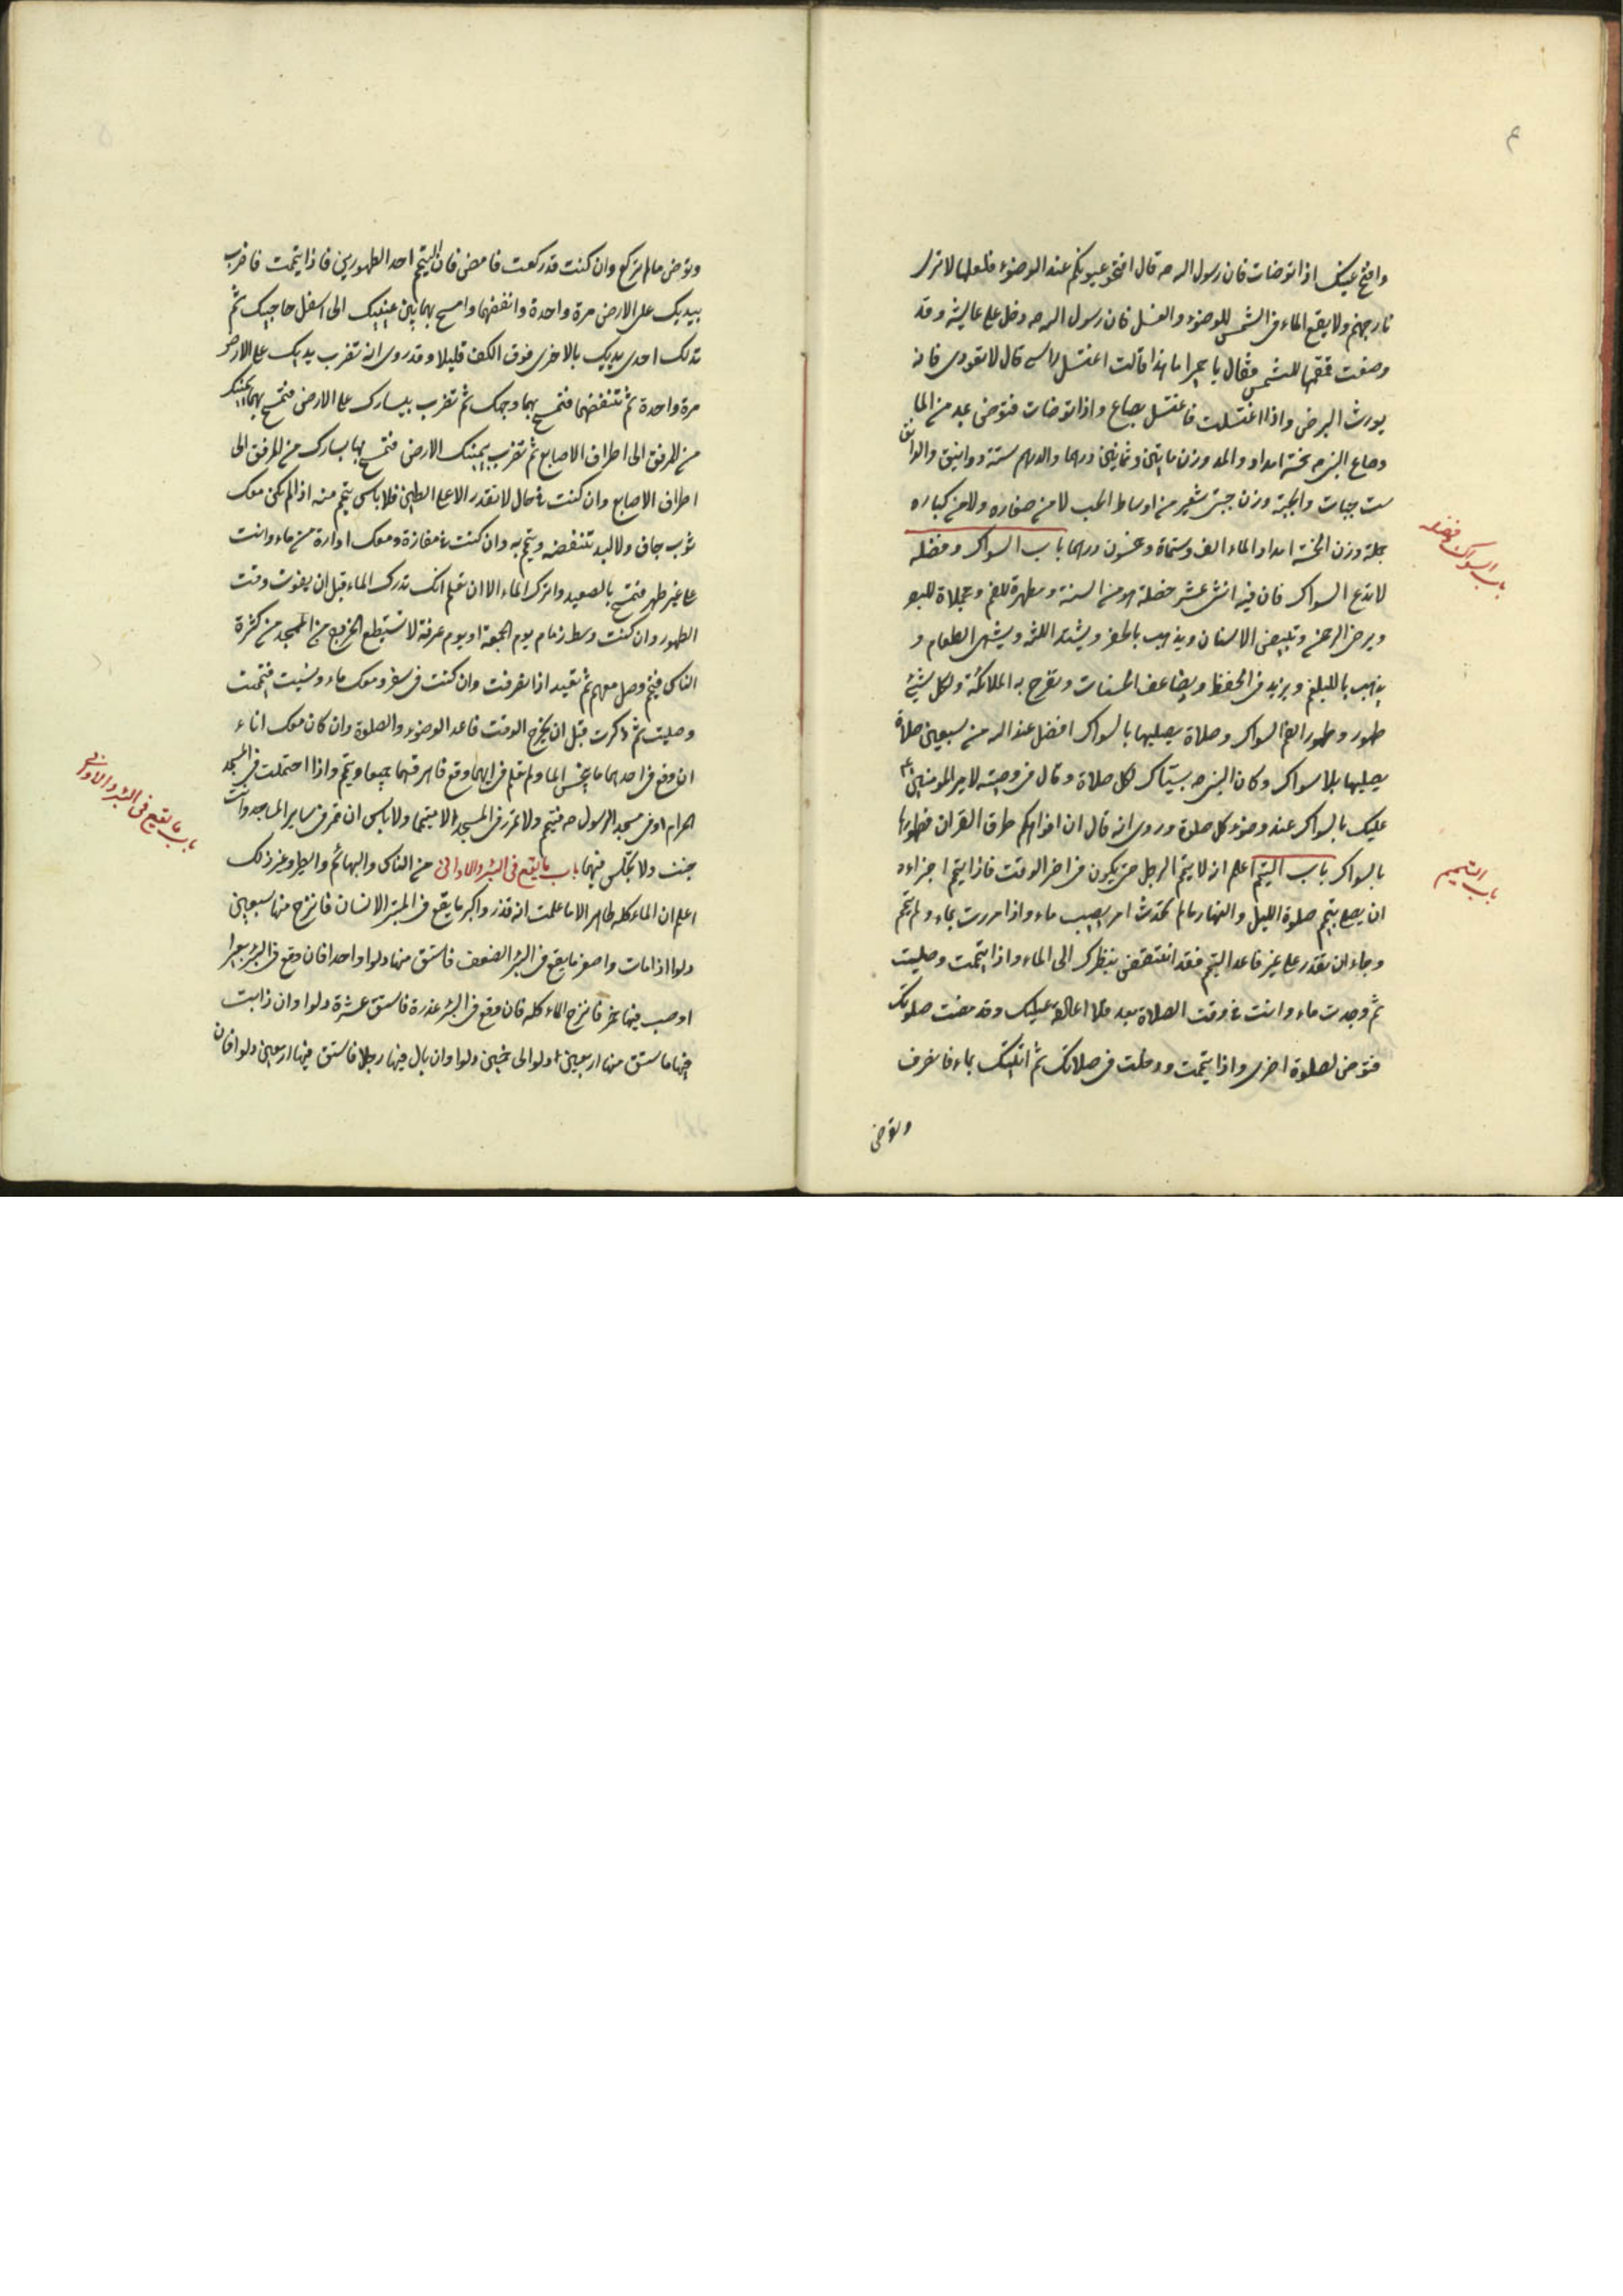 وافتح عينيك اذا توضات فان رسول الله ص قال افتحوا عيونكم عند الوضوء فلعلها لا ترى
نار جهنم ولا يقع الماء فى الشمس للوضوء والغسل فان رسول الله ص دخل على عايشه وقد
وضعت قمقمها للشمس فقال يا حميرا ما هذا قالت اغتسل راسى قال لا تعودى فانه
يورث البرص واذا اغتسلت فاغتسل بصاع واذا توضات فتوض بمد من الما
وصاع النبى ص خمسة امداد والمد وزن مايتين وثمانين درهما والدرهم ستة دوانيق والدانق
ست حبات والحبة وزن حبتى شعير من اوساط الحب لا من صغاره ولا من كباره
جملة وزن الخمسة امداد الماء الف وستماة وعشرون درهما باب السواك وفضله
لا تدع السواك فان فيه اثنى عشر خصلة هو من السنة ومطهرة للفم ومجلاة للبصر
ويرضى الرحمن وتبييض الاسنان ويذهب بالحفر ويشد اللثه ويشهى الطعام و
يذهب بالبلغم ويزيد فى الحفظ ويضاعف الحسنات وتفرح به الملائكة ولكل شيئ
طهور وطهور الفم السواك وصلاة يصليها بالسواك افضل عند الله من سبعين صلاة
يصليها بلا سواك وكان النبى ص يستاك لكل صلاة وقال فى وصيته لامير المومنين ع
عليك بالسواك عند وضوء كل صلوة وروى انه قال ان افواهكم طرق القران فطهروها
بالسواك باب التيمم اعلم انه لا يتيمم الرجل حتى يكون فى اخر الوقت فاذا تيمم اجزاءه
ان يصلى بتيممه صلوة الليل والنهار مالم يحدث او يصيب ماء واذا مررت بماء ولم تتيمم
وجاء ان تقدر على غيره فاعد التيمم فقد انتقض بنظرك الى الماء واذا تيممت وصليت
ثم وجدت ماء وانت فى وقت الصلاة بعد فلا اعادة عليك وقد مضت صلوتك
فتوض لصلوة اخرى واذا تيممت ودخلت فى صلاتك ثم اتيتك بماء فانصرف
وتوض
باب السواك وفضله
باب التيمم
وتوض مالم تركع وان كنت قد ركعت فامض فان التيمم احد الطهورين فاذا تيممت فاضرب
بيديك على الارض مرة واحدة وانفضهما وامسح بهما بين عينيك الى اسفل حاجبيك ثم
تدلك احدى يديك بالاخرى فوق الكف قليلا وقد روى ان تضرب يديك على الارض
مرة واحدة ثم تنفضهما فتمسح بهما وجهك ثم تضرب بيسارك على الارض فتمسح بها يمينك
من المرفق الى اطراف الاصابع ثم تضرب بيمينك الارض فتمسح بها يسارك من المرفق الى
اطراف الاصابع وان كنت فى حال لا تقدر الا على الطين فلا باس تيمم منه اذا لم يكن معك
ثوب جاف ولا لبد تنفضه وتيمم به وان كنت فى مفازة ومعك اداوة من ماء وانت
على غير طهر فتمسح بالصعيد واترك الماء الا ان تعلم انك تدرك الماء قبل ان يفوت وقت
الطهور وان كنت وسط زحام يوم الجمعة او يوم عرفة لا تستطيع الخروج من المسجد من كثرة
الناس فتيمم وصل معهم ثم تعيد اذا انصرفت وان كنت فى سفر ومعك ماء ونسيت فتيممت
وصليت ثم ذكرت قبل ان يخرج الوقت فاعد الوضوء والصلوة وان كان معك اناء
ان وقع فى احدهما ما ينجس الما ولم تعلم فى ايهما وقع فاهرقهما جميعا وتيمم واذا احتملت فى المسجد
الحرام او فى مسجد الرسول ص فتيمم ولا تمر فى المسجد الا متيمما ولا باس ان تمر فى ساير المساجد وانت
جنب ولا تجلس فيها باب ما يقع فى البئر والاوانى من الناس والبهائم والطير وغير ذلك
اعلم ان الماء كله طاهر الا ما علمت انه قذر واكبر ما يقع فى البئر الانسان فانزح منها سبعين
دلوا اذا مات واصغر ما يقع فى البئر الصعوة فاستق منها دلوا واحدا فان وقع فى البئر بعيرا
او صب فيها خمر فانزح الماء كله فان وقع فى البئر عذرة فاستق عشرة دلوا وان ذابت
فيها فاستق منها اربعين دلوا الى خمسين دلوا وان بال فيها رجل فاستق فيها اربعين دلوا فان
باب ما يقع فى البئر والاوانى